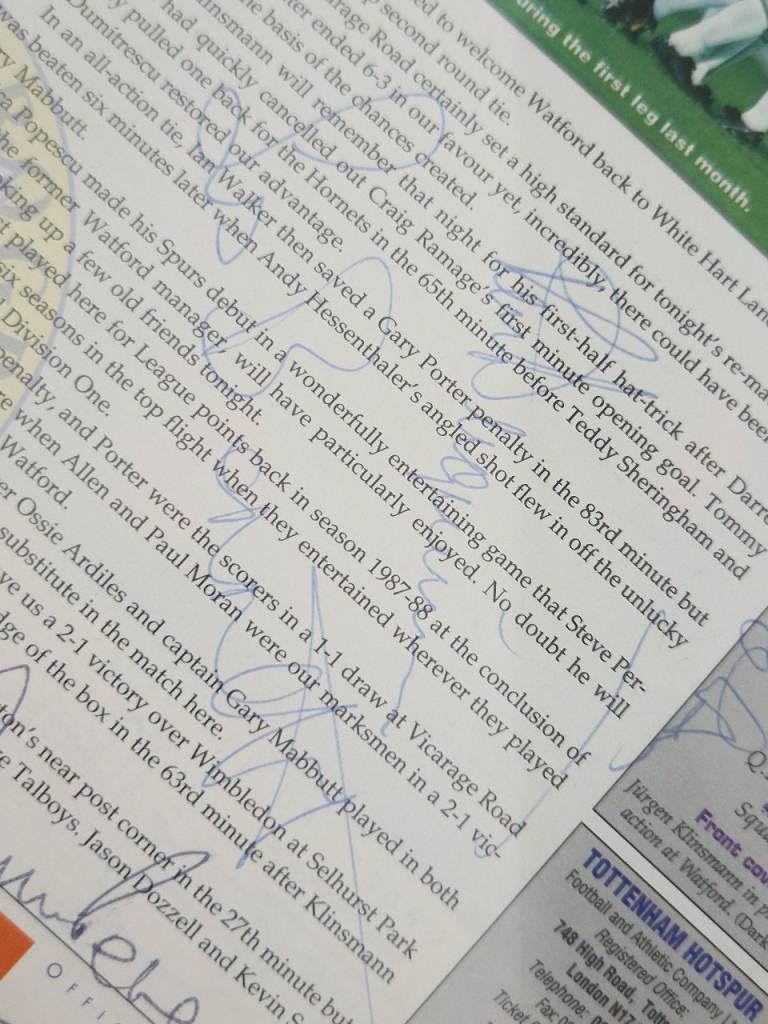 uring the first leg last month.
ed to welcome Watford back to White Hart Lan
p second round tie.
arage Road certainly set a high standard for tonight's re-ma
ter ended 6-3 in our favour yet, incredibly, there could have been
he basis of the chances created.
linsmann will remember that night for his first-half hat-trick after Darre
had quickly cancelled out Craig Ramage's first minute opening goal. Tommy
y pulled one back for the Hornets in the 65th minute before Teddy Sheringham and
Dumitrescu restored our advantage.
In an all-action tie, Ian Walker then saved a Gary Porter penalty in the 83rd minute but
was beaten six minutes later when Andy Hessenthaler's angled shot flew in off the unlucky
ry Mabbutt.
a Popescu made his Spurs debut in a wonderfully entertaining game that Steve Per-
he former Watford manager, will have particularly enjoyed. No doubt he will
king up a few old friends tonight.
t played here for League points back in season 1987-88 at the conclusion of
six seasons in the top flight when they entertained wherever they played
Division One.
penalty, and Porter were the scorers in a 1-1 draw at Vicarage Road
re when Allen and Paul Moran were our marksmen in a 2-1 vic-
Watford.
er Ossie Ardiles and captain Gary Mabbutt played in both
substitute in the match here.
ve us a 2-1 victory over Wimbledon at Selhurst Park
dge of the box in the 63rd minute after Klinsmann
ton's near post corner in the 27th minute but
e Talboys, Jason Dozzell and Kevin S
OFFI
Q.
Squa
Front cov
Jürgen Klinsmann in p
action at Watford. (Dark
TOTTENHAM HOTSPUR
Football and Athletic Company L
Registered Office:
748 High Road, Totte
London N17
Telephone:
Fax:
Ticket